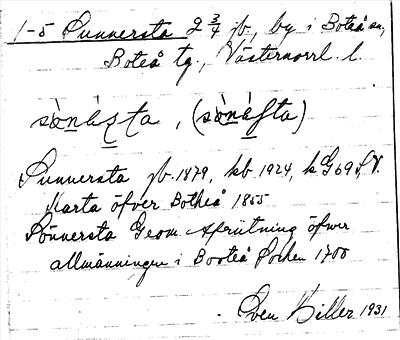 1-5 Sunnersta 2 3/4 jb, by i Boteå sn,
Boteå tg., Västernorrl. l.
sònàʂta, (sònàʂta)
Sunnersta jb 1879, kb 1924, kG69S.V.
Karta öfver Botheå 1855
Sönnersta Geom. Afritning öfwer
allmänningen i Booteå Sochen 1700
Sven Hiller 1931